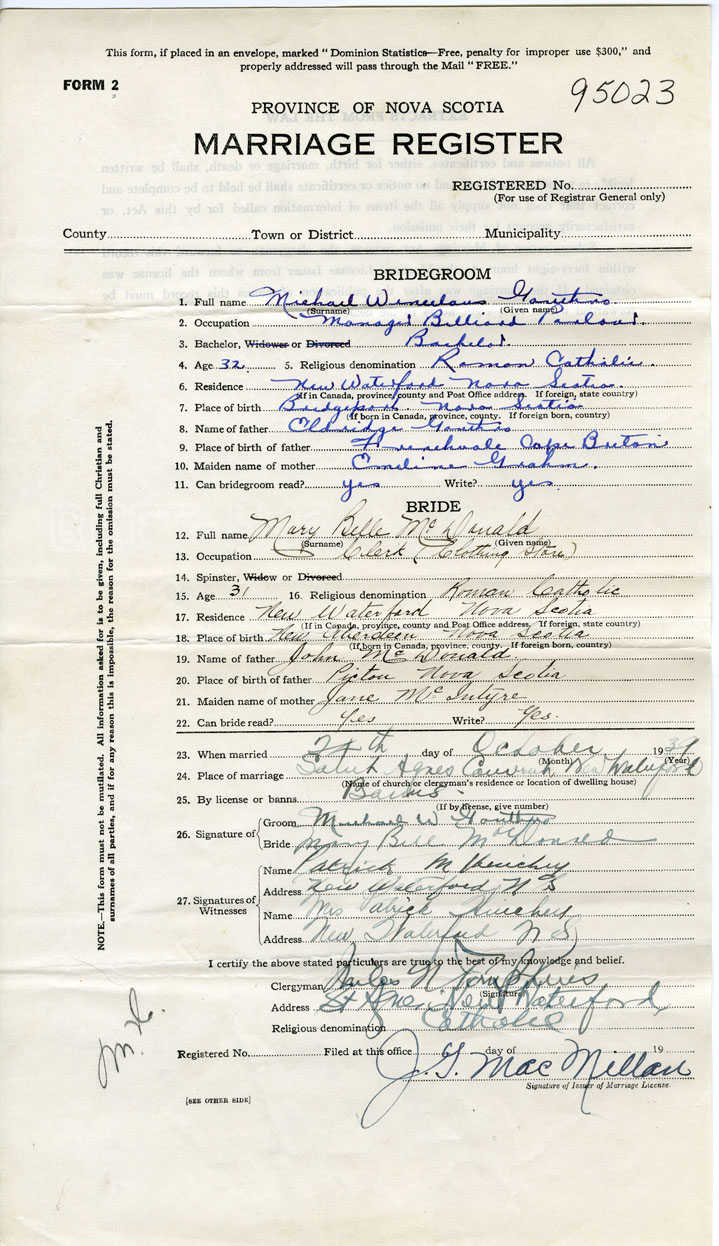 This form, if placed in an envelope, marked "Dominion Statistics—Free, penalty for improper use $300," and
properly addressed will pass through the Mail "FREE."
FORM 2
95023
PROVINCE OF NOVA SCOTIA
MARRIAGE REGISTER
REGISTERED No.
(For use of Registrar General only)
County Town or District Municipality
BRIDEGROOM
1. Full name Michael Wenceslaus Gouthro
(Surname) (Given name)
2. Occupation Manager Billiard Parlour.
3. Bachelor, Widower or Divorced Bachelor
4. Age 32 5. Religious denomination Roman Catholic
6. Residence New Waterford Nova Scotia
(If in Canada, province, county and Post Office address. If foreign, state country)
7. Place of birth Bridgeport Nova Scotia
(If born in Canada, province, county. If foreign born, country)
8. Name of father Gouthro
9. Place of birth of father Frenchvale Cape Breton
10. Maiden name of mother Emeline
11. Can bridegroom read? yes Write? yes
BRIDE
12. Full name Mary Belle McDonald
(Surname) (Given name)
13. Occupation Clerk (Clothing Store)
14. Spinster, Widow or Divorced
15. Age 31 16. Religious denomination Roman Catholic
17. Residence New Waterford Nova Scotia
(If in Canada, province, county and Post Office address. If foreign, state country)
18. Place of birth New Aberdeen Nova Scotia
(If born in Canada, province, county. If foreign born, country)
19. Name of father John McDonald
20. Place of birth of father Pictou Nova Scotia
21. Maiden name of mother Jane McIntyre
22. Can bride read? Yes Write? Yes.
23. When married day of October 1939
(Month) (Year)
24. Place of marriage Saint Agnes Church New Waterford
(Name of church or clergyman's residence or location of dwelling house)
25. By license or banns Banns
(If by license, give number)
26. Signature of
Groom Michael W Gouthro
Bride Mary Bell McDonald
27. Signatures of Witnesses
Name Patrick
Address New Waterford N S
Name Mrs Patrick
Address New Waterford N S
I certify the above stated particulars are true to the best of my knowledge and belief.
Clergyman Tompkins
(Signature)
Address St Agnes New Waterford
Religious denomination Catholic
Registered No. Filed at this office day of 19
J. G. MacMillan
Signature of Issuer of Marriage License
[SEE OTHER SIDE]
NOTE.—This form must not be mutilated. All information asked for is to be given, including full Christian and
surnames of all parties, and if for any reason this is impossible, the reason for the omission must be stated.